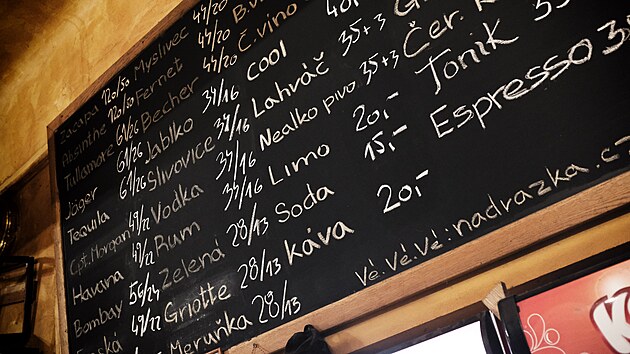 Zacapa 120/50 Myslivec 47/20
Absinthe 120/50 Fernet 47/20 Č.víno 40,-
Tullamore 61/26 Becher 47/20 COOL 35+3
Jäger 61/26 Jablko 37/16 Lahváč 35+3 Čer.
Tequila 49/22 Slivovice 37/16 Nealko pivo 20,- Tonik
Cpt. Morgan 49/22 Vodka 37/16 Limo 15,- Espresso
Havana 56/24 Rum 37/16 Soda 20,-
Bombay 49/22 Zelená 28/13 káva
Griotte 28/13
Meruňka 28/13
Vé.Vé.Vé. nadrazka.cz